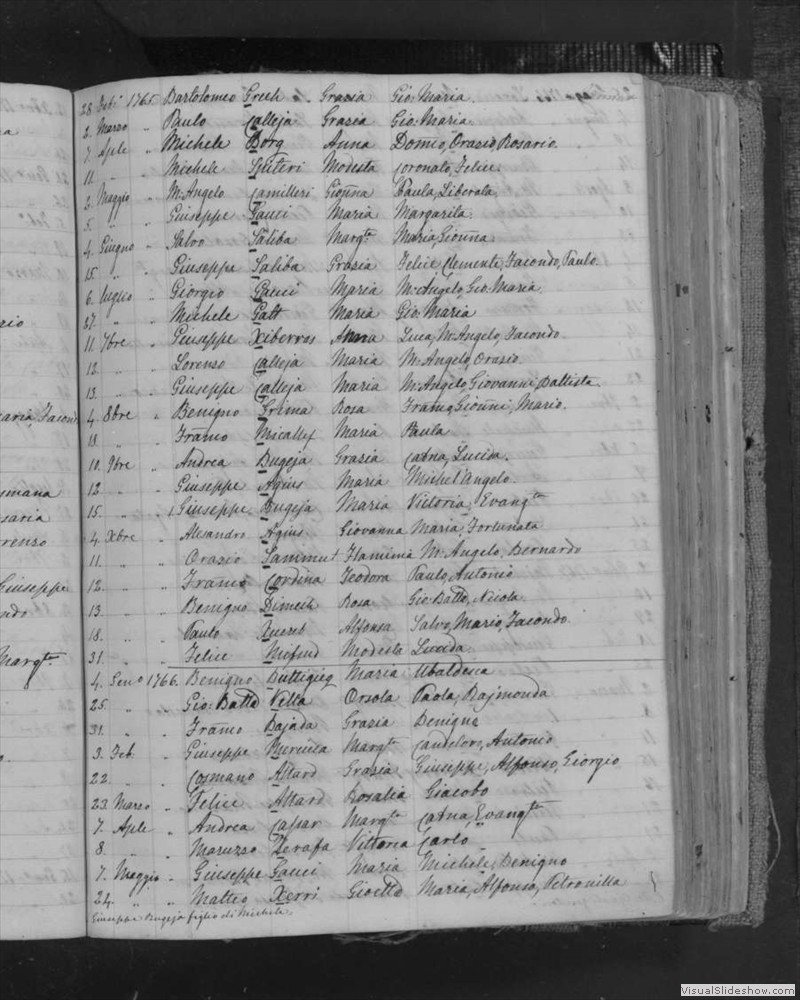 28 Feb. 1765 Bartolomeo Grech Grazia Gio: Maria
2. Marzo „ Paulo Calleja Grazia Gio: Maria
7. Aple „ Michele Borg Anna Domco, Orazio, Rosario.
11. „ Michele Spiteri Modesta Coronato, Felice.
2. Maggio „ M. Angelo Camilleri Gionna Paula, Liberata,
5. „ „ Guiseppe Gauci Maria Margarita.
4. Giugno „ Salvo Saliba Margta Maria, Gionna
15. „ „ Giuseppe Saliba Grazia Felice Clemente, Facondo, Paulo.
6. luglio „ Giorgio Gauci Maria M. Angelo, Gio: Maria,
27. „ „ Michele Gatt Maria Gio: Maria
11. 7bre „ Giuseppe Xiberros Anna Luca, M. Angelo, Facondo.
12. „ „ Lorenzo Calleja Maria M. Angelo, Orazio.
13. „ „ Giuseppe Calleja Maria M. Angelo, Giovanni Battista.
4. 8bre „ Benigno Grima Rosa Franco, Gionni, Mario.
18. „ „ Franco Micallef Maria Paula
10. 9bre „ Andrea Bugeja Grazia Catna, Lucida.
12. „ „ Giuseppe Agius Maria Michel' Angelo.
15. „ „ Giuseppe Bugeja Maria Victoria, Evangta
4. Xbre „ Alesandro Agius Giovanna Maria, Fortunata
11. „ „ Orazio Sammut Flaminia M. Angelo, Bernardo
12. „ „ Franco Cordina Teodora Paulo, Antonio
13. „ „ Benigno Dimech Rosa Gio: Batta, Nicola
18. „ „ Paulo Xuereb Alfonsa Salvo, Mario, Facondo.
31. „ „ Felice Mifsud Modesta Lucida.
4. Geno 1766. Benigno Buttigieg Maria Ubaldesca
25. „ „ Gio: Batta Vella Orsola Paola, Rajmonda
31. „ „ Franco Bajada Grazia Benigna
3. Feb. „ Giuseppe Mercieca Margta Candeloro, Antonio
22. „ „ Cosmano Attard Grazia Giuseppe, Alfonso, Giorgio
23. Marzo „ Felice Attard Rosalia Giacobo
7. Aple „ Andrea Capar Margta Catna, Evangta
8. „ „ Maruzzo Zerafa Vittoria Carlo
7. Maggio „ Giuseppe Gauci Maria Michele, Benigno
24. „ „ Matteo Xerri Gioetta Maria, Alfonso, Petronilla
Giuseppe Bugeja figlio di Michele.
VisualSlideshow.com